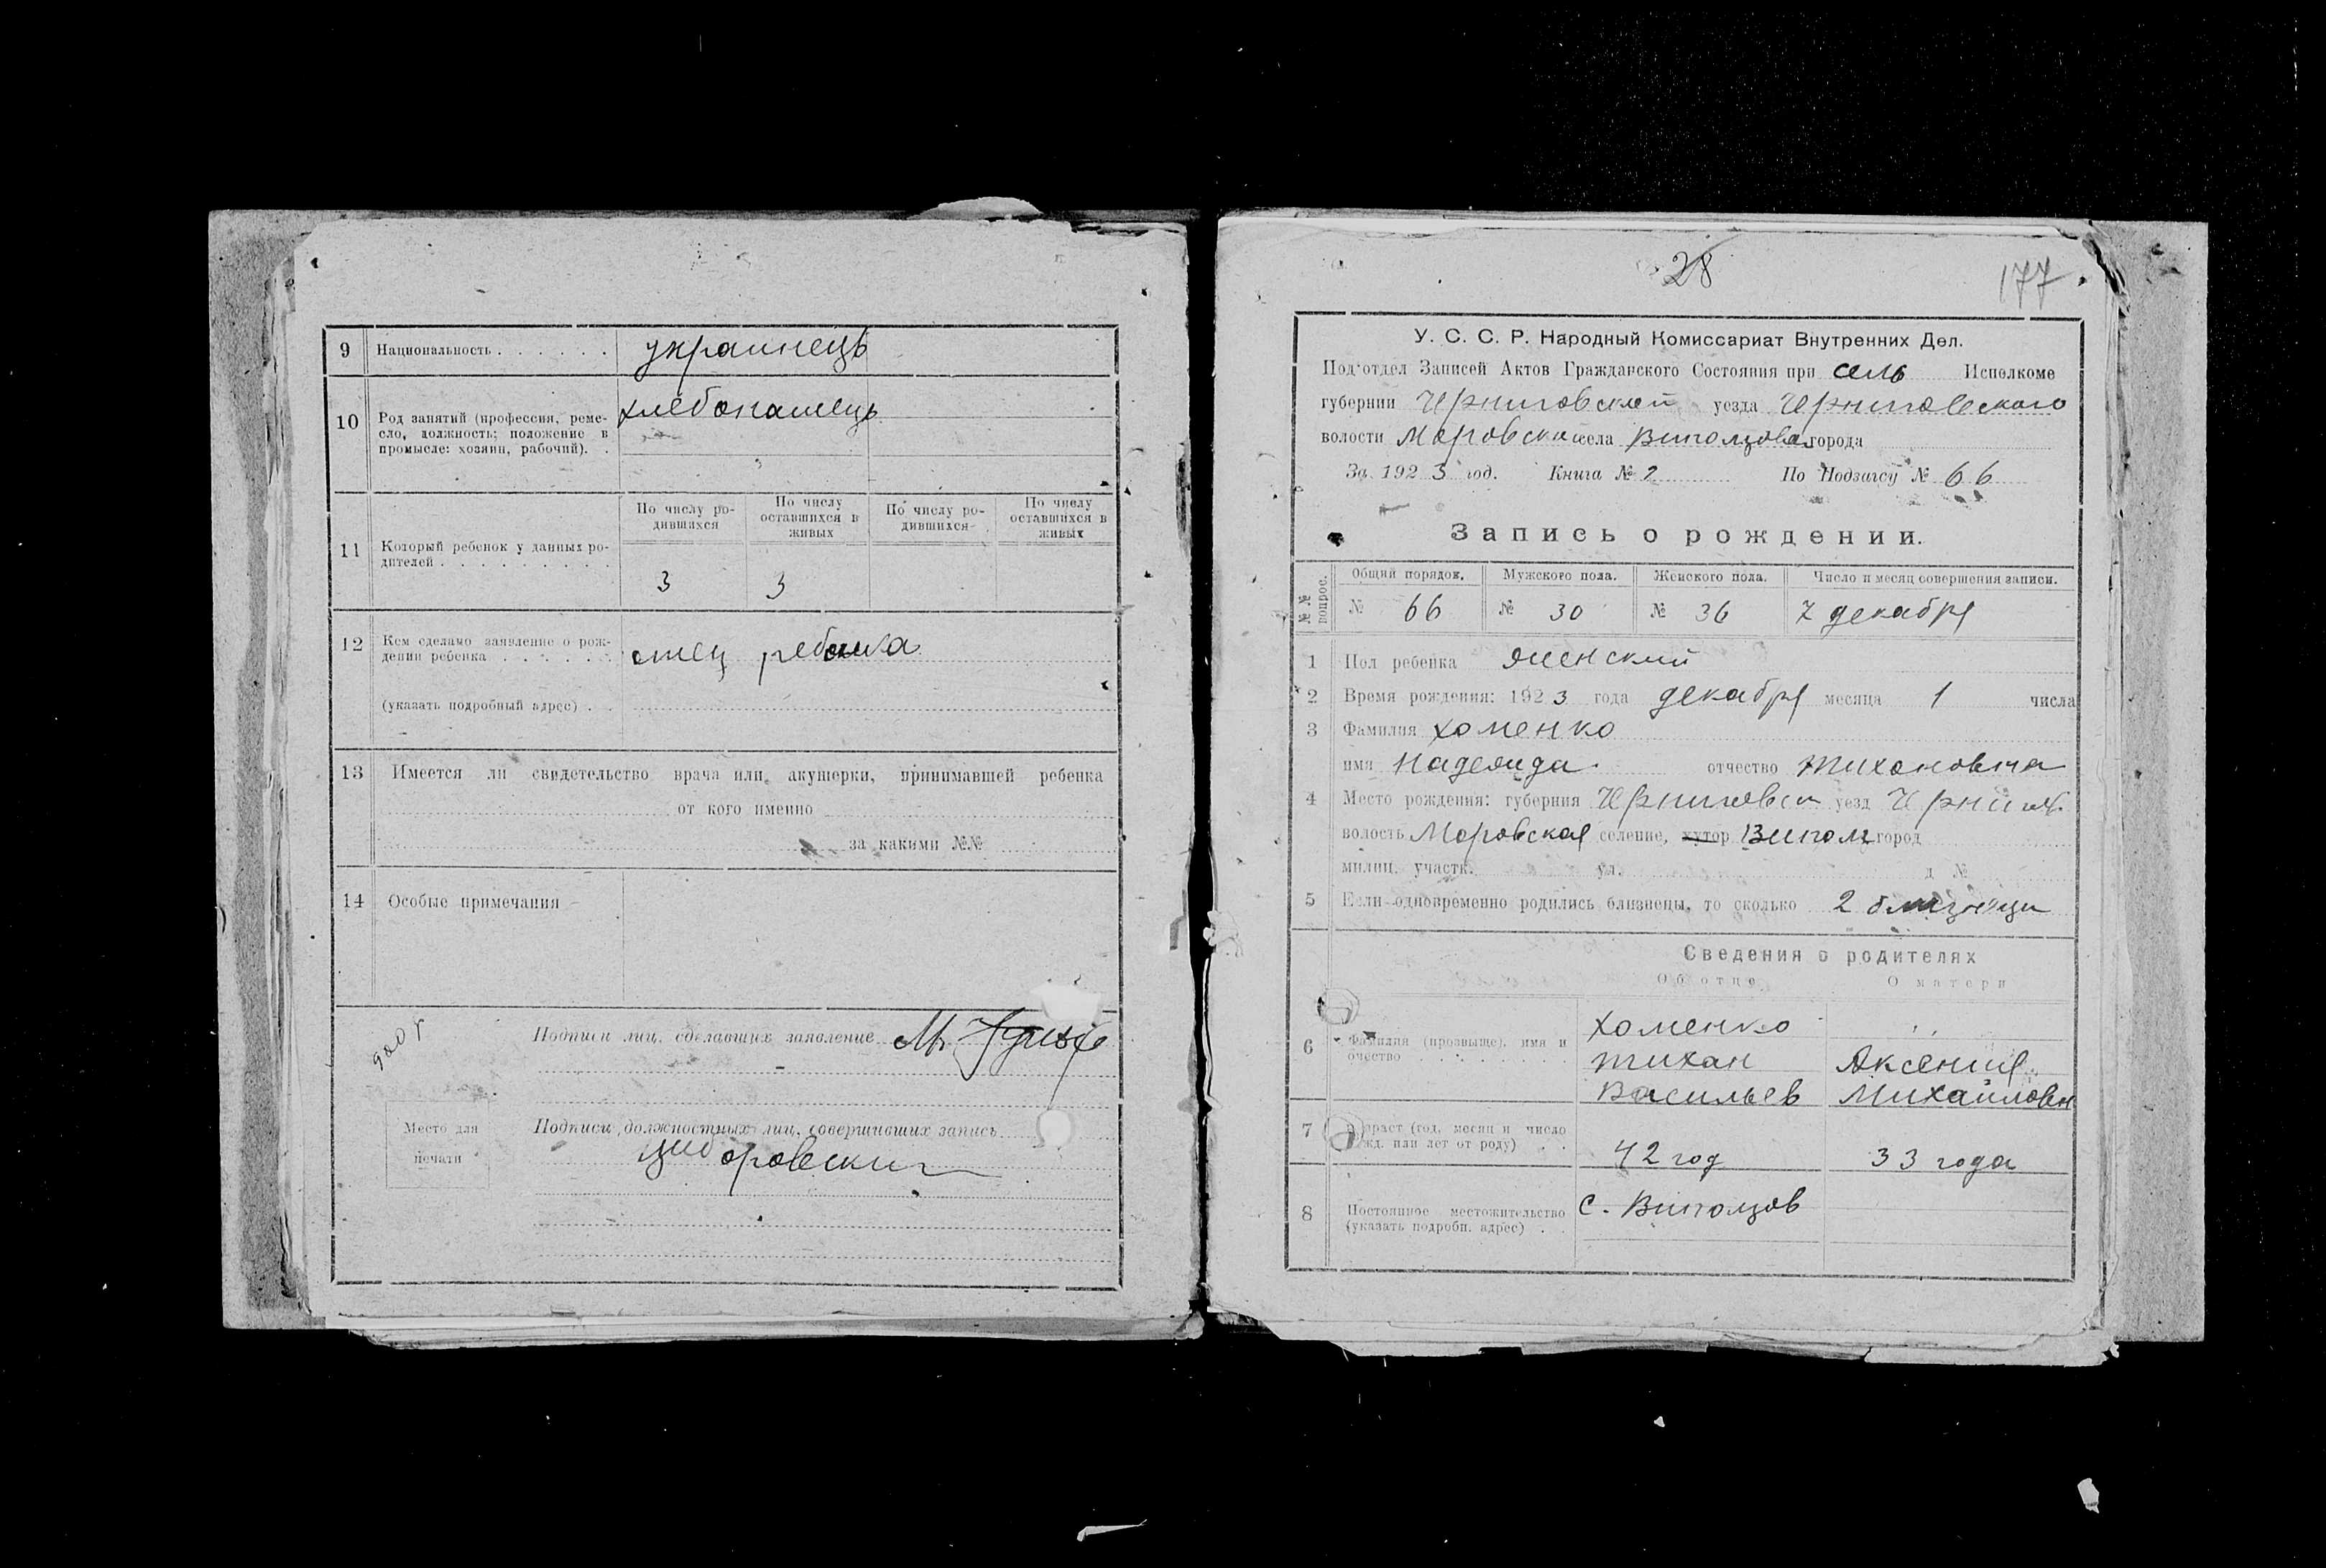 9 Национальность . . . . . . украинець
10 Род занятий (профессия, реме- хлебопашець
сло, должность; положение в
промысле: хозяин, рабочий). .
По числу ро- По числу По числу ро- По числу
дившихся оставшихся в дившихся оставшихся в
живых живых
11 Который ребенок у данных ро-
дителей . . . . . . . . . 3 3
12 Кем сделано заявление о рож-
дении ребенка . . . . . . отец ребонка
(указать подробный адрес) . .
13 Имеется ли свидетельство врача или акушерки, принимавшей ребенка
от кого именно
за какими №№
14 Особые примечания
Подписи лиц, сделавших заявление
Место для
печати
Подписи должностных лиц, совершивших запись
28
177
У. С. С. Р. Народный Комиссариат Внутренних Дел.
Подотдел Записей Актов Гражданского Состояния при сель Исполкоме
губернии Черниговской уезда Черниговского
волости Моровской села Виползова города
За 1923 год. Книга № 2 По Подзагсу № 66
Запись о рождении.
№№ вопрос. Общий порядок. Мужского пола. Женского пола. Число и месяц совершения записи.
№ 66 № 30 № 36 7 декабря
1 Пол ребенка женский
2 Время рождения: 1923 года декабря месяца 1 числа
3 Фамилия Хоменко
имя Надежда отчество Тихоновна
4 Место рождения: губерния Черниговск уезд Черниг.
волость Моровская селение, хутор Випол город
милиц. участк. ул. д №
5 Если одновременно родились близнецы, то сколько 2 близнеци
Сведения о родителях
Об отце О матери
Хоменко ,,
6 Фамилия (прозвыще), имя и Тихан Аксения
очество . . . . . . . . Васильев Михайловн
7 Возраст (год, месяц и число
рожд. или лет от роду) . . 42 год 33 года
8 Постоянное местожительство с. Виползов
(указать подробн. адрес) . .